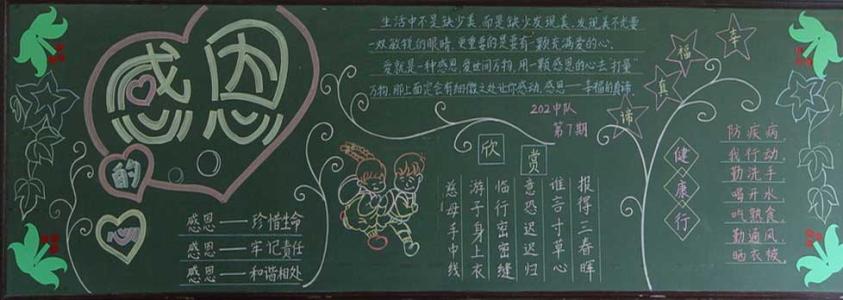 感恩
的
心
感恩——珍惜生命
感恩——牢记责任
感恩——和谐相处
生活中不是缺少美,而是缺少发现美,发现美不光要
一双敏锐的眼睛,更重要的是要有一颗充满爱的心。
爱就是一种感恩,爱世间万物,用一颗感恩的心去“打量”
万物,那上面定会有细微之处让你感动,感恩——幸福的真谛。
202中队
第7期
欣赏
慈母手中线
游子身上衣
临行密密缝
意恐迟迟归
谁言寸草心
报得三春晖
幸福真谛
健康行
防疾病
我行动,
勤洗手
喝开水,
吃熟食,
勤通风,
晒衣被。